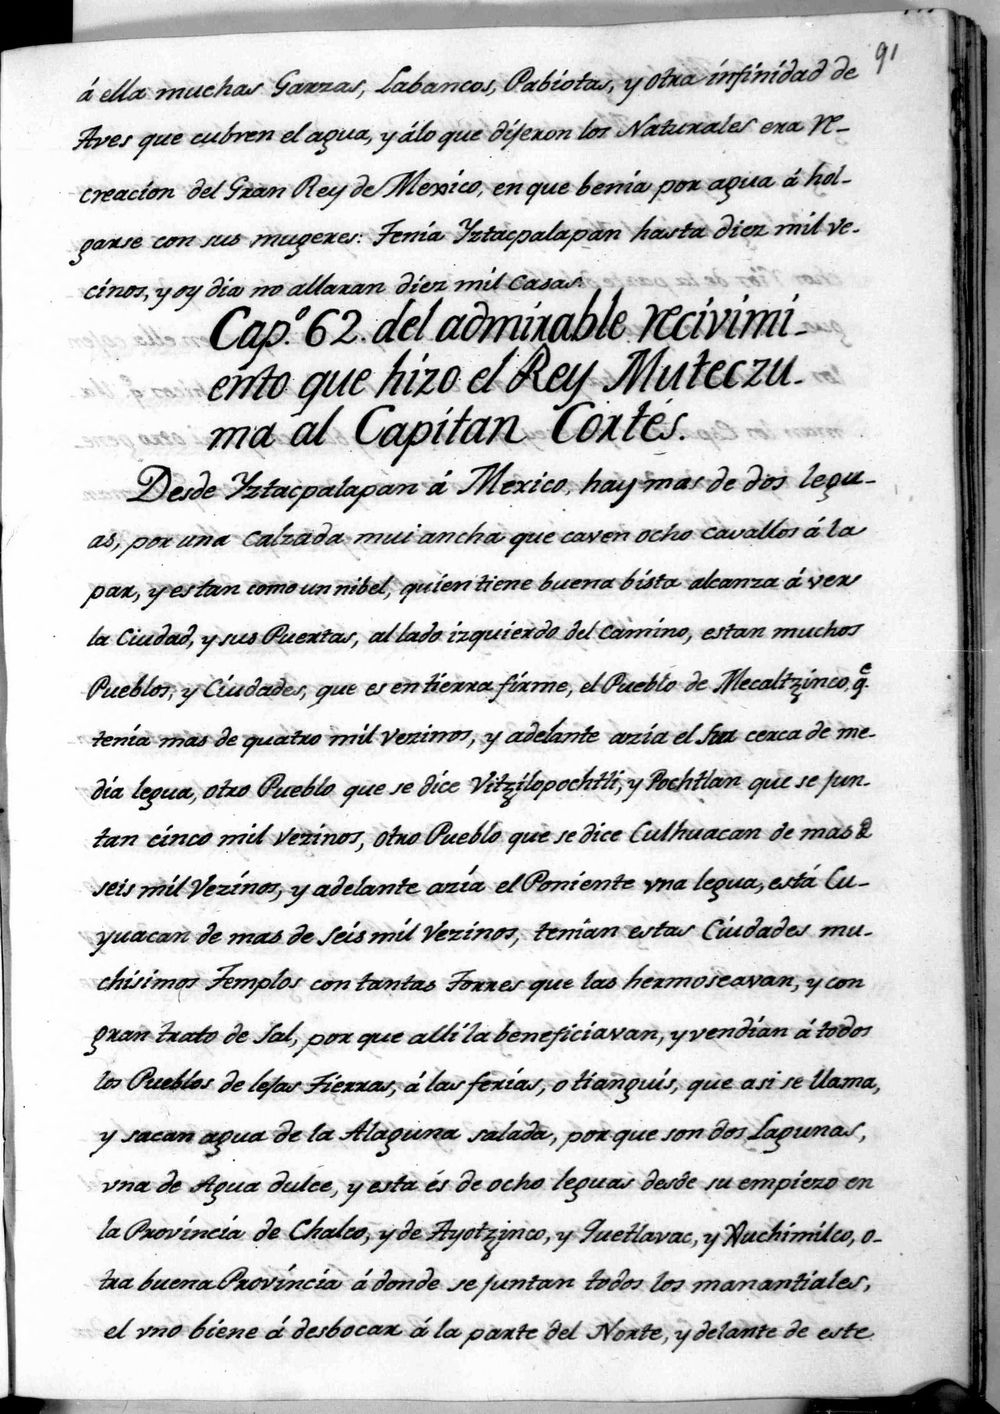 91
á ella muchas Garzas, Labancos, Pabiotas, y otra infinidad de
Aves que cubren el agua, y álo que dijeron los Naturales era re-
creacion del Gran Rey de Mexico, en que benia por agua á hol-
garse con sus mugeres: Tenia Yztacpalapan hasta diez mil ve-
cinos, y oy dia no allaran diez mil casas.
Cap.º 62. del admirable recivimi-
ento que hizo el Rey Muteczu-
ma al Capitan Cortés.
Desde Yztacpalapan á Mexico, hay mas de dos legu-
as, por una calzada mui ancha que caven ocho cavallos á la
par, y estan como un nibel, quien tiene buena bista alcanza á ver
la Ciudad, y sus Puertas, al lado izquierdo del camino, estan muchos
Pueblos, y Ciudades, que es en tierra firme, el Pueblo de Mecaltzinco, q.e
tenia mas de quatro mil vezinos, y adelante azia el Sur cerca de me-
dia legua, otro Pueblo que se dice Vitzilopochtli, y Pochtlan que se jun-
tan cinco mil vezinos, otro Pueblo que se dice Culhuacan de mas de
seis mil Vezinos, y adelante azia el Poniente vna legua, está Cu-
yuacan de mas de seis mil Vezinos, tenian estas Ciudades mu-
chisimos Templos con tantas Torres que las hermoseavan, y con
gran trato de Sal, por que alli la beneficiavan, y vendian á todos
los Pueblos de lesas Tierras, á las ferias, o tianguis, que asi se llama,
y sacan agua de la Alaguna salada, por que son dos Lagunas,
vna de Agua dulce, y esta és de ocho leguas desde su empiezo en
la Provincia de Chalco, y de Ayotzinco, y Quetlavac, y Xuchimilco, o-
tra buena Provincia á donde se juntan todos los manantiales,
el vno biene á desbocar á la parte del Norte, y delante de este